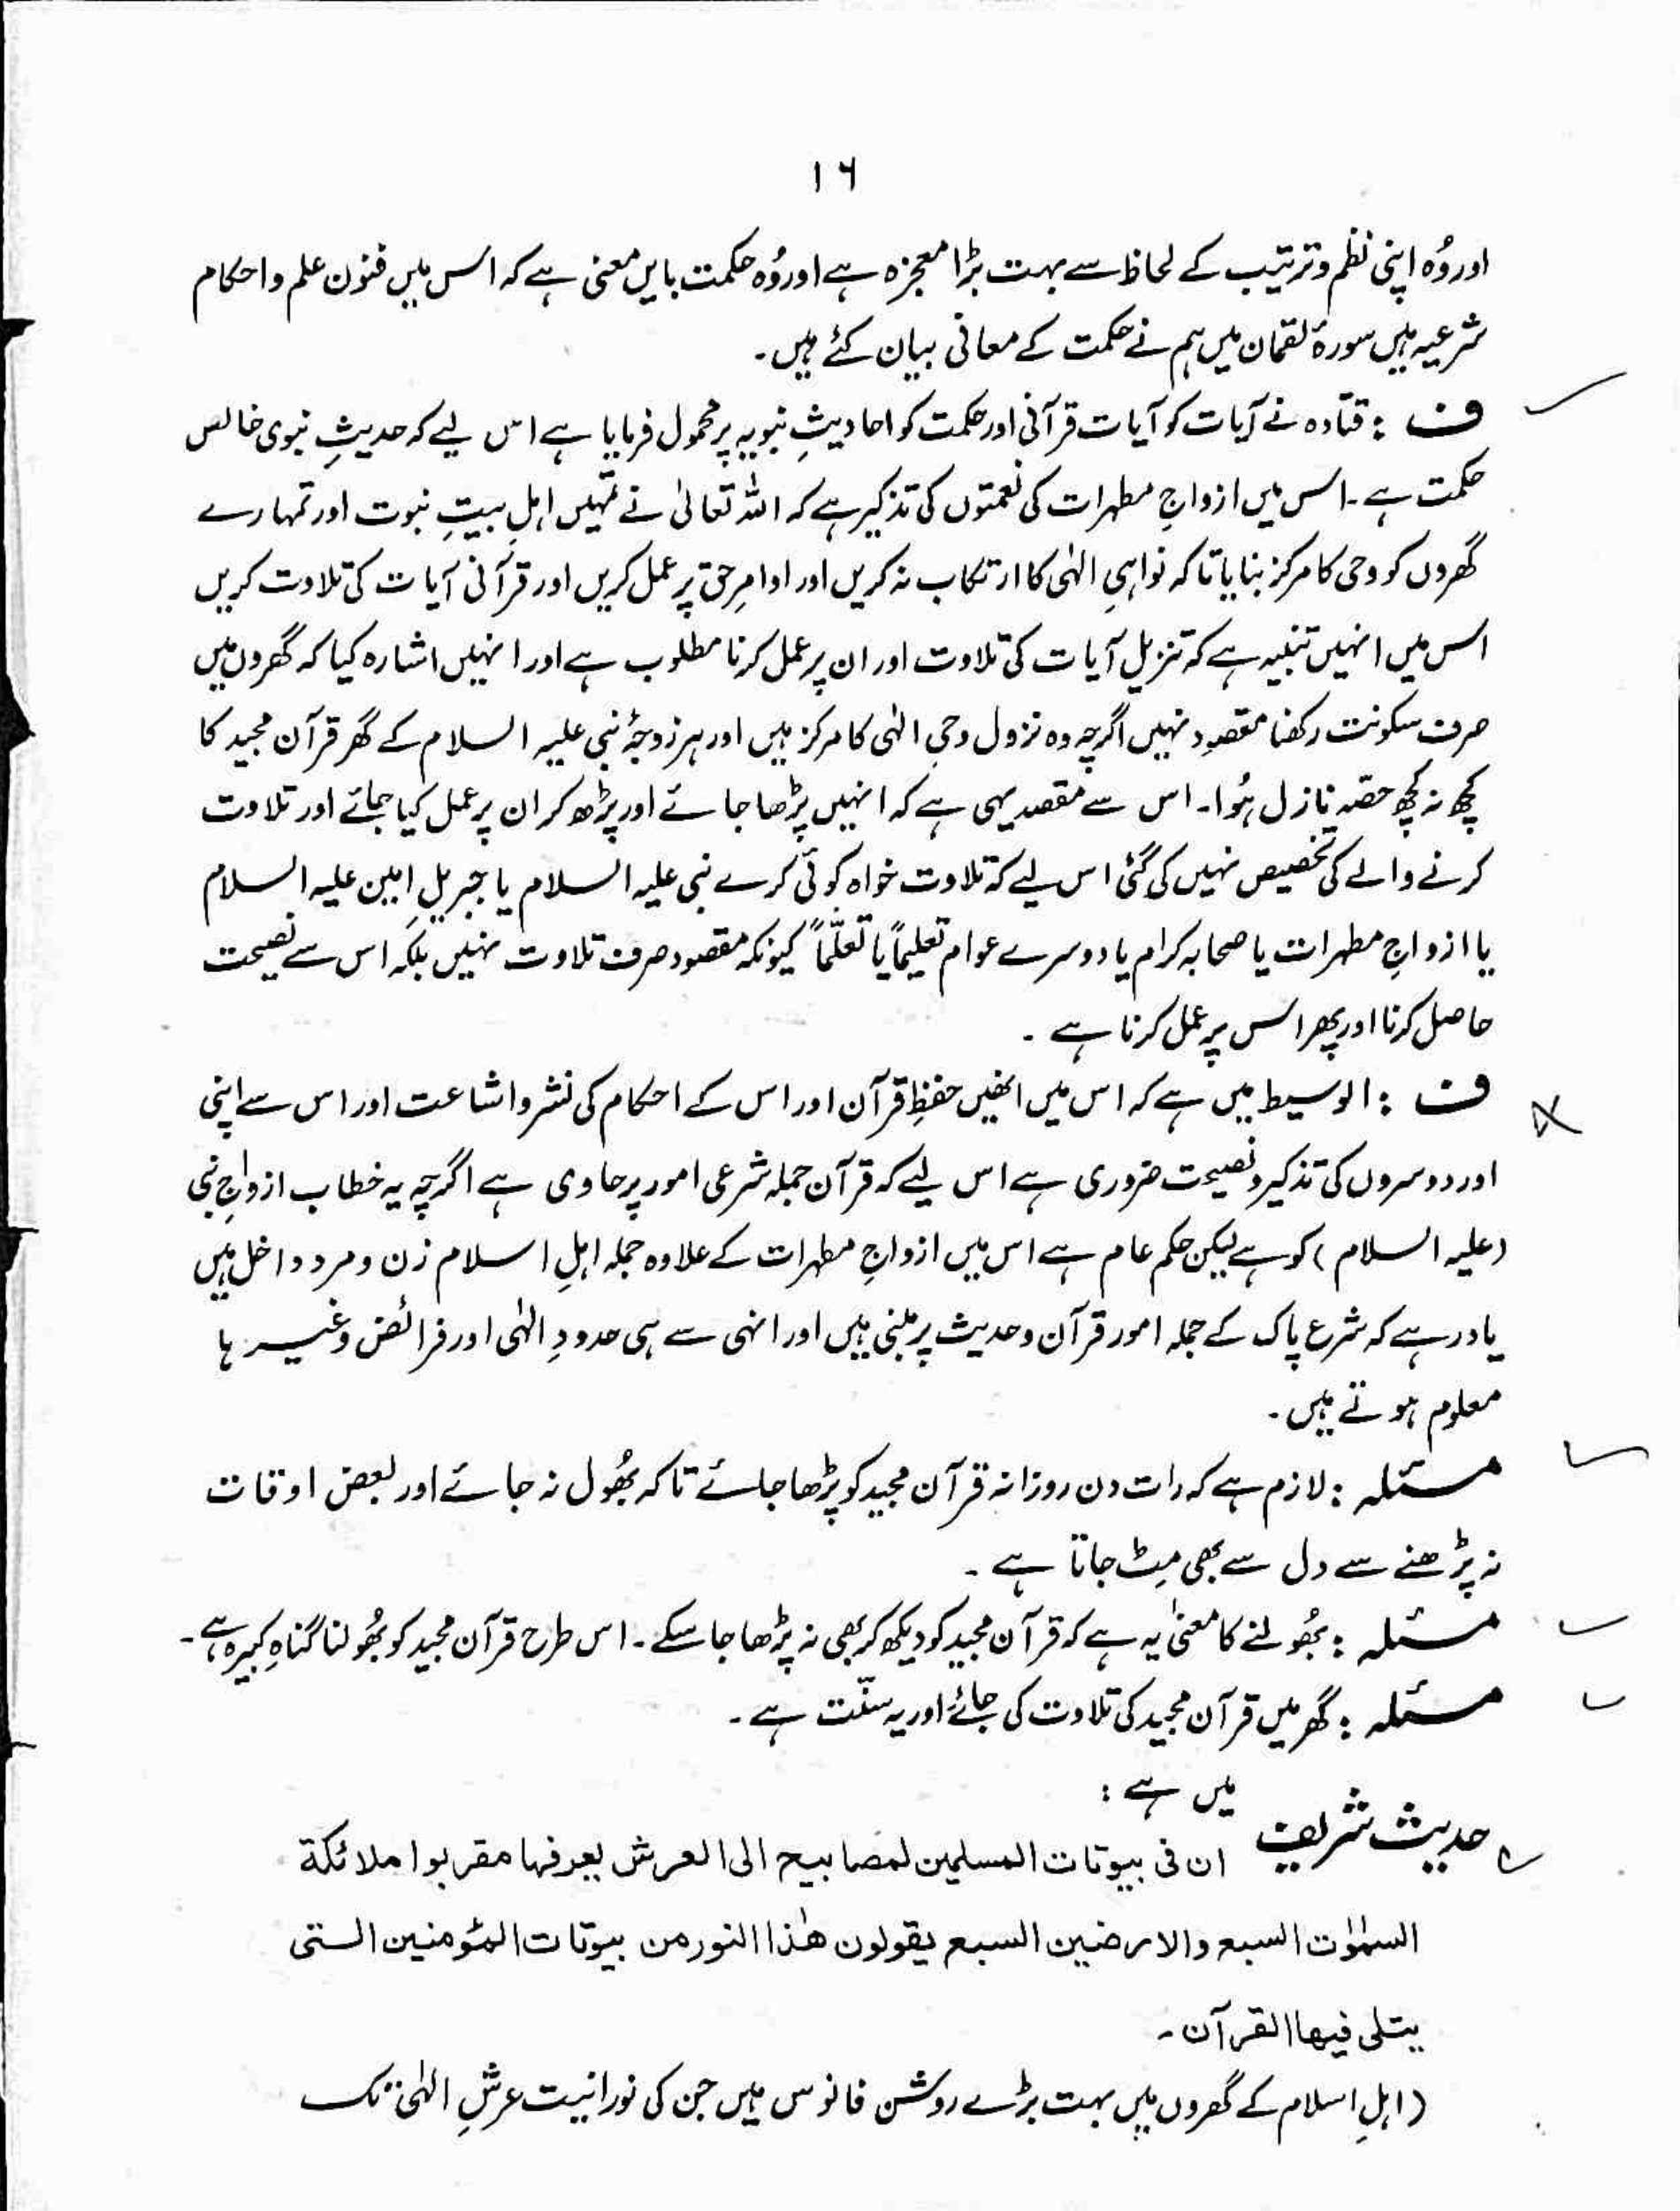 ۱۶
اور وُہ اپنی نظم و ترتیب کے لحاظ سے بہت بڑا معجزہ ہے اور وُہ حکمت بایں معنی ہے کہ اس میں فنون علم و احکام
شرعیہ ہیں سورۃ لقمان میں ہم نے حکمت کے معانی بیان کئے ہیں۔
ف : قتادہ نے آیات کو آیات قرآنی اور حکمت کو احادیثِ نبویہ پر محمول فرمایا ہے اس لیے کہ حدیثِ نبوی خالص
حکمت ہے۔ اس میں ازواجِ مطہرات کی نعمتوں کی تذکیر ہے کہ اللہ تعالیٰ نے تمہیں اہلِ بیتِ نبوت اور تمہارے
گھروں کو وحی کا مرکز بنایا تاکہ نواہیِ الٰہی کا ارتکاب نہ کریں اور اوامرِ حق پر عمل کریں اور قرآنی آیات کی تلاوت کریں
اس میں انہیں تنبیہ ہے کہ تنزیل آیات کی تلاوت اور ان پر عمل کرنا مطلوب ہے اور انہیں اشارہ کیا کہ گھروں میں
صرف سکونت رکھنا مقصود نہیں اگرچہ وہ نزول وحیِ الٰہی کا مرکز ہیں اور ہر زوجۂ نبی علیہ السلام کے گھر قرآن مجید کا
کچھ نہ کچھ حصہ نازل ہُوا۔ اس سے مقصد یہی ہے کہ انہیں پڑھا جائے اور پڑھ کر ان پر عمل کیا جائے اور تلاوت
کرنے والے کی تخصیص نہیں کی گئی اس لیے کہ تلاوت خواہ کوئی کرے نبی علیہ السلام یا جبریلِ امین علیہ السلام
یا ازواجِ مطہرات یا صحابہ کرام یا دوسرے عوام تعلیماً یا تعلّماً کیونکہ مقصود صرف تلاوت نہیں بلکہ اس سے نصیحت
حاصل کرنا اور پھر اس پر عمل کرنا ہے ۔
ف : الوسیط میں ہے کہ اس میں انھیں حفظِ قرآن اور اس کے احکام کی نشر و اشاعت اور اس سے اپنی
اور دوسروں کی تذکیر و نصیحت ضروری ہے اس لیے کہ قرآن جملہ شرعی امور پر حاوی ہے اگرچہ یہ خطاب ازواجِ نبی
(علیہ السلام) کو ہے لیکن حکم عام ہے اس میں ازواجِ مطہرات کے علاوہ جملہ اہلِ اسلام زن و مرد داخل ہیں
یاد رہے کہ شرع پاک کے جملہ امور قرآن و حدیث پر مبنی ہیں اور انہی سے ہی حدودِ الٰہی اور فرائض وغیرہا
معلوم ہوتے ہیں۔
مسئلہ : لازم ہے کہ رات دن روزانہ قرآن مجید کو پڑھا جائے تاکہ بھُول نہ جائے اور بعض اوقات
نہ پڑھنے سے دل سے بھی مِٹ جاتا ہے ۔
مسئلہ : بھُولنے کا معنیٰ یہ ہے کہ قرآن مجید کو دیکھ کر بھی نہ پڑھا جا سکے۔ اس طرح قرآن مجید کو بھُولنا گناہِ کبیرہ ہے۔
مسئلہ : گھر میں قرآن مجید کی تلاوت کی جائے اور یہ سنّت ہے ۔
حدیث شریف میں ہے :
ان فی بیوتات المسلمین لمصابیح الی العرش یعرفہا مقربوا ملائکۃ
السمٰوٰت السبع والارضین السبع یقولون ھٰذا النور من بیوتات المؤمنین التی
یتلی فیھا القرآن۔
(اہلِ اسلام کے گھروں میں بہت بڑے روشن فانوس ہیں جن کی نورانیت عرشِ الٰہی تک